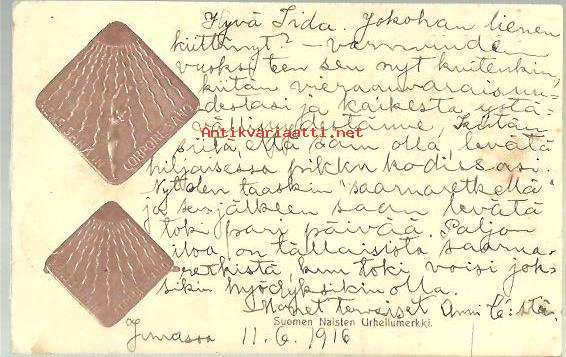 Hyvä Iida. Jokohan lienen
kiittänyt? – varmuuden
vuoksi teen sen nyt kuitenkin,
kiitän vieraanvaraisuu-
destasi ja kaikesta ystä-
vällisyydestänne, Kiitän
Antikvariaatti.net
siitä, että sain olla, levätä
hiljaisessa pikku kodissasi.
Nyt olen taaskin "saarnaretkellä"
ja sen jälkeen saan levätä
toki pari päivää. Paljon
iloa on tällaisista saarna-
retkistä, kun toki voisi jok-
sikin hyödyksikin olla.
terveiset Anni
Suomen Naisten Urheilumerkki.
11.6.1916
CORPORE SANO